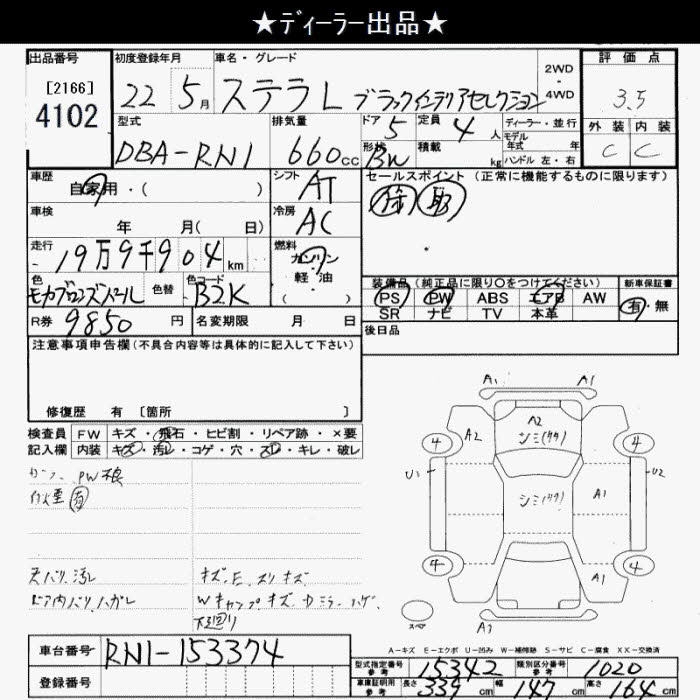 ★ディーラー出品★
出品番号 初度登録年月 車名・グレード 評価点
[2166] 4102 22 5月 ステラL ブラックインテリアセレクション 2WD・4WD 3.5
型式 排気量 ドア 定員 ディーラー・並行 外装 内装
DBA-RN1 660cc 5 4人 モデル年式 年 C C
形状 積載 kg ハンドル 左・右
BW
車歴 自家用・( ) シフト AT セールスポイント (正常に機能するものに限ります)
車検 年 月( 日) 冷房 AC
走行 19万9千904km 燃料 ガソリン・軽油 ( )
色 モカブロンズパール 色替 色コード B2K 装備品(純正品に限り○をつけてください) 新車保証書
PS PW ABS エアB AW 有・無
R券 9850円 名変期限 月 日 SR ナビ TV 本革
後日品
注意事項申告欄(不具合内容等は具体的に記入して下さい)
修復歴 有 [箇所 ]
検査員 FW キズ・飛石・ヒビ割・リペア跡・×要
記入欄 内装 キズ・汚レ・コゲ・穴・スレ・キレ・破レ
A1 A1
A2
シミ(クク)
4 A2 4
U1 U2
シミ(クク) A1
4 A1 4
スペア A2
天バリ汚レ キズ.E.スリキズ
ドア内バリハガレ Wキャップキズ.
下廻り
A-キズ E-エクボ U-凹み W-補修跡 S-サビ C-腐食 XX-交換済
車台番号 RN1-153374
登録番号
型式指定番号 参考 15342 類別区分番号 参考 1020
車庫証明用 参考 長さ 339cm 幅 147cm 高さ 164cm